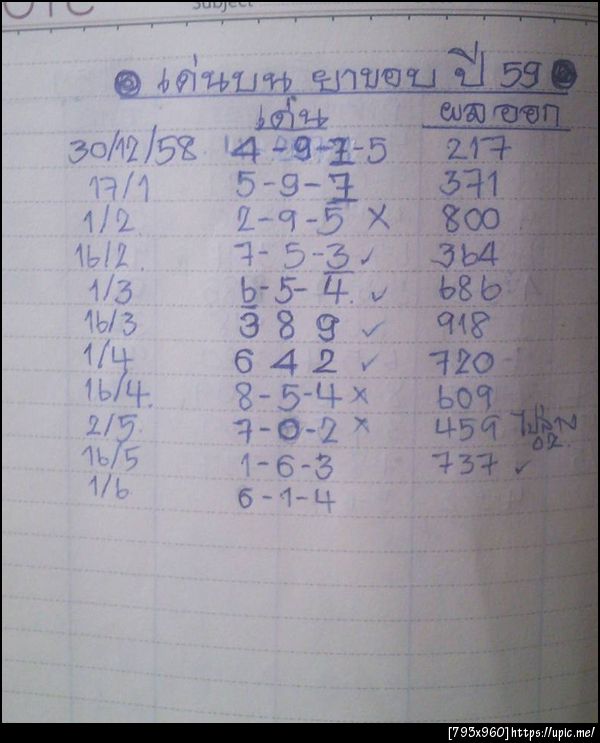 Subject
เด่นบน ยาขอบ ปี 59
เด่น ผลออก
30/12/58 4-9-7-5 217
17/1 5-9-7 371
1/2 2-9-5 X 800
16/2 7-5-3 ✓ 364
1/3 6-5-4 ✓ 686
16/3 3 8 9 ✓ 918
1/4 6 4 2 ✓ 720
16/4 8-5-4 x 609
2/5 7-0-2 x 459 ไปล่าง
02
16/5 1-6-3 737 ✓
1/6 6-1-4
[793x960]https://upic.me/